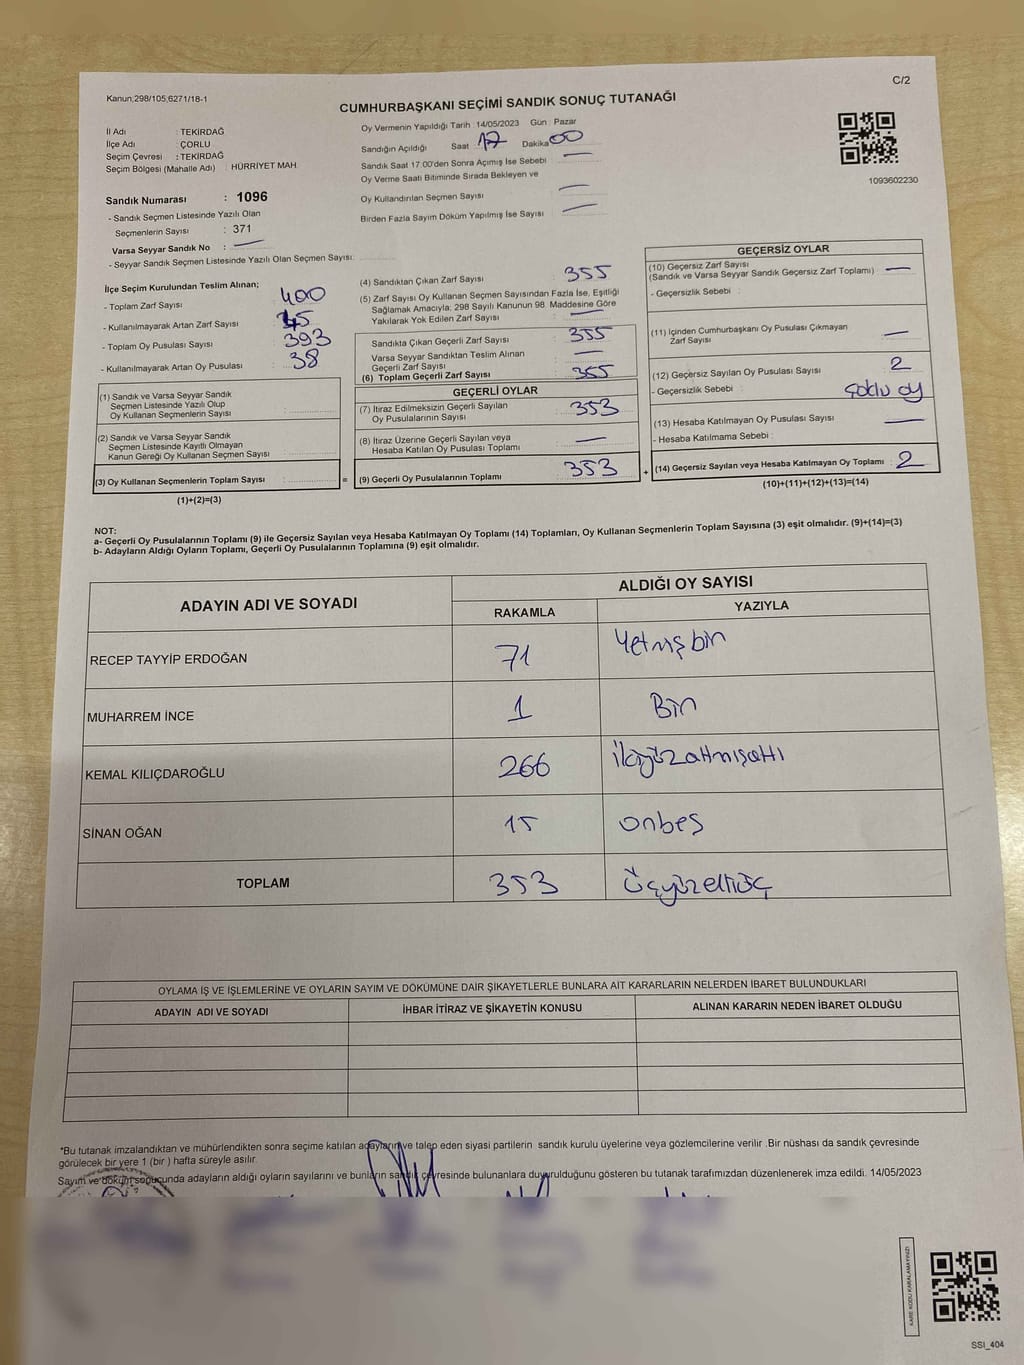 C/2
Kanun,298/105,6271/18-1
CUMHURBAŞKANI SEÇİMİ SANDIK SONUÇ TUTANAĞI
İl Adı : TEKİRDAĞ
İlçe Adı : ÇORLU
Seçim Çevresi : TEKİRDAĞ
Seçim Bölgesi (Mahalle Adı) : HÜRRİYET MAH
Sandık Numarası : 1096
- Sandık Seçmen Listesinde Yazılı Olan
Seçmenlerin Sayısı : 371
Varsa Seyyar Sandık No :
- Seyyar Sandık Seçmen Listesinde Yazılı Olan Seçmen Sayısı:
Oy Vermenin Yapıldığı Tarih : 14/05/2023 Gün : Pazar
Sandığın Açıldığı Saat 17 Dakika 00
Sandık Saat 17.00'den Sonra Açımış İse Sebebi
Oy Verme Saati Bitiminde Sırada Bekleyen ve
Oy Kullandırılan Seçmen Sayısı
Birden Fazla Sayım Döküm Yapılmış İse Sayısı
1093602230
İlçe Seçim Kurulundan Teslim Alınan;
- Toplam Zarf Sayısı : 400
- Kullanılmayarak Artan Zarf Sayısı : 45
- Toplam Oy Pusulası Sayısı : 393
- Kullanılmayarak Artan Oy Pusulası : 38
(1) Sandık ve Varsa Seyyar Sandık
Seçmen Listesinde Yazılı Olup
Oy Kullanan Seçmenlerin Sayısı :
(2) Sandık ve Varsa Seyyar Sandık
Seçmen Listesinde Kayıtlı Olmayan
Kanun Gereği Oy Kullanan Seçmen Sayısı :
(3) Oy Kullanan Seçmenlerin Toplam Sayısı :
(1)+(2)=(3)
=
(4) Sandıktan Çıkan Zarf Sayısı : 355
(5) Zarf Sayısı Oy Kullanan Seçmen Sayısından Fazla İse, Eşitliği
Sağlamak Amacıyla; 298 Sayılı Kanunun 98. Maddesine Göre
Yakılarak Yok Edilen Zarf Sayısı :
Sandıkta Çıkan Geçerli Zarf Sayısı : 355
Varsa Seyyar Sandıktan Teslim Alınan
Geçerli Zarf Sayısı :
(6) Toplam Geçerli Zarf Sayısı : 355
GEÇERLİ OYLAR
(7) İtiraz Edilmeksizin Geçerli Sayılan
Oy Pusulalarının Sayısı : 353
(8) İtiraz Üzerine Geçerli Sayılan veya
Hesaba Katılan Oy Pusulası Toplamı :
(9) Geçerli Oy Pusulalarının Toplamı : 353
+
GEÇERSİZ OYLAR
(10) Geçersiz Zarf Sayısı
(Sandık ve Varsa Seyyar Sandık Geçersiz Zarf Toplamı) :
- Geçersizlik Sebebi :
(11) İçinden Cumhurbaşkanı Oy Pusulası Çıkmayan
Zarf Sayısı :
(12) Geçersiz Sayılan Oy Pusulası Sayısı : 2
- Geçersizlik Sebebi : oy
(13) Hesaba Katılmayan Oy Pusulası Sayısı :
- Hesaba Katılmama Sebebi :
(14) Geçersiz Sayılan veya Hesaba Katılmayan Oy Toplamı : 2
(10)+(11)+(12)+(13)=(14)
NOT:
a- Geçerli Oy Pusulalarının Toplamı (9) ile Geçersiz Sayılan veya Hesaba Katılmayan Oy Toplamı (14) Toplamları, Oy Kullanan Seçmenlerin Toplam Sayısına (3) eşit olmalıdır. (9)+(14)=(3)
b- Adayların Aldığı Oyların Toplamı, Geçerli Oy Pusulalarının Toplamına (9) eşit olmalıdır.
ADAYIN ADI VE SOYADI ALDIĞI OY SAYISI
RAKAMLA YAZIYLA
RECEP TAYYİP ERDOĞAN 71 Yetmişbin
MUHARREM İNCE 1 Bin
KEMAL KILIÇDAROĞLU 266 ikiyüzaltmışaltı
SİNAN OĞAN 15 onbeş
TOPLAM 353 üçyüzelliüç
OYLAMA İŞ VE İŞLEMLERİNE VE OYLARIN SAYIM VE DÖKÜMÜNE DAİR ŞİKAYETLERLE BUNLARA AİT KARARLARIN NELERDEN İBARET BULUNDUKLARI
ADAYIN ADI VE SOYADI İHBAR İTİRAZ VE ŞİKAYETİN KONUSU ALINAN KARARIN NEDEN İBARET OLDUĞU
*Bu tutanak imzalandıktan ve mühürlendikten sonra seçime katılan adayların ve talep eden siyasi partilerin sandık kurulu üyelerine veya gözlemcilerine verilir .Bir nüshası da sandık çevresinde
görülecek bir yere 1 (bir ) hafta süreyle asılır.
Sayım ve döküm sonucunda adayların aldığı oyların sayılarını ve bunların sandık çevresinde bulunanlara duyurulduğunu gösteren bu tutanak tarafımızdan düzenlenerek imza edildi. 14/05/2023
KARE KODU KARALAMAYINIZ!
SSI_404